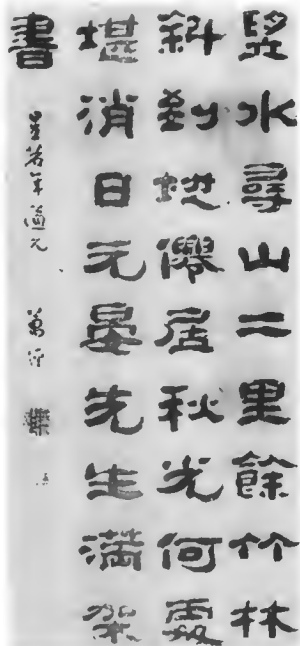 水尋山二里餘竹林
斜到地僊居秋光何處
堪消日元晏先生滿架
書